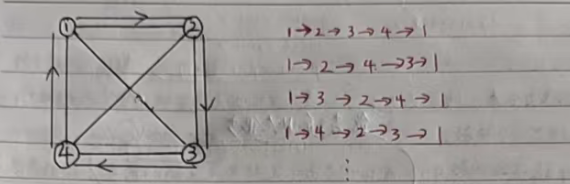 ① ②
④ ③
1→2→3→4→1
1→2→4→3→1
1→3→2→4→1
1→4→2→3→1
⋮